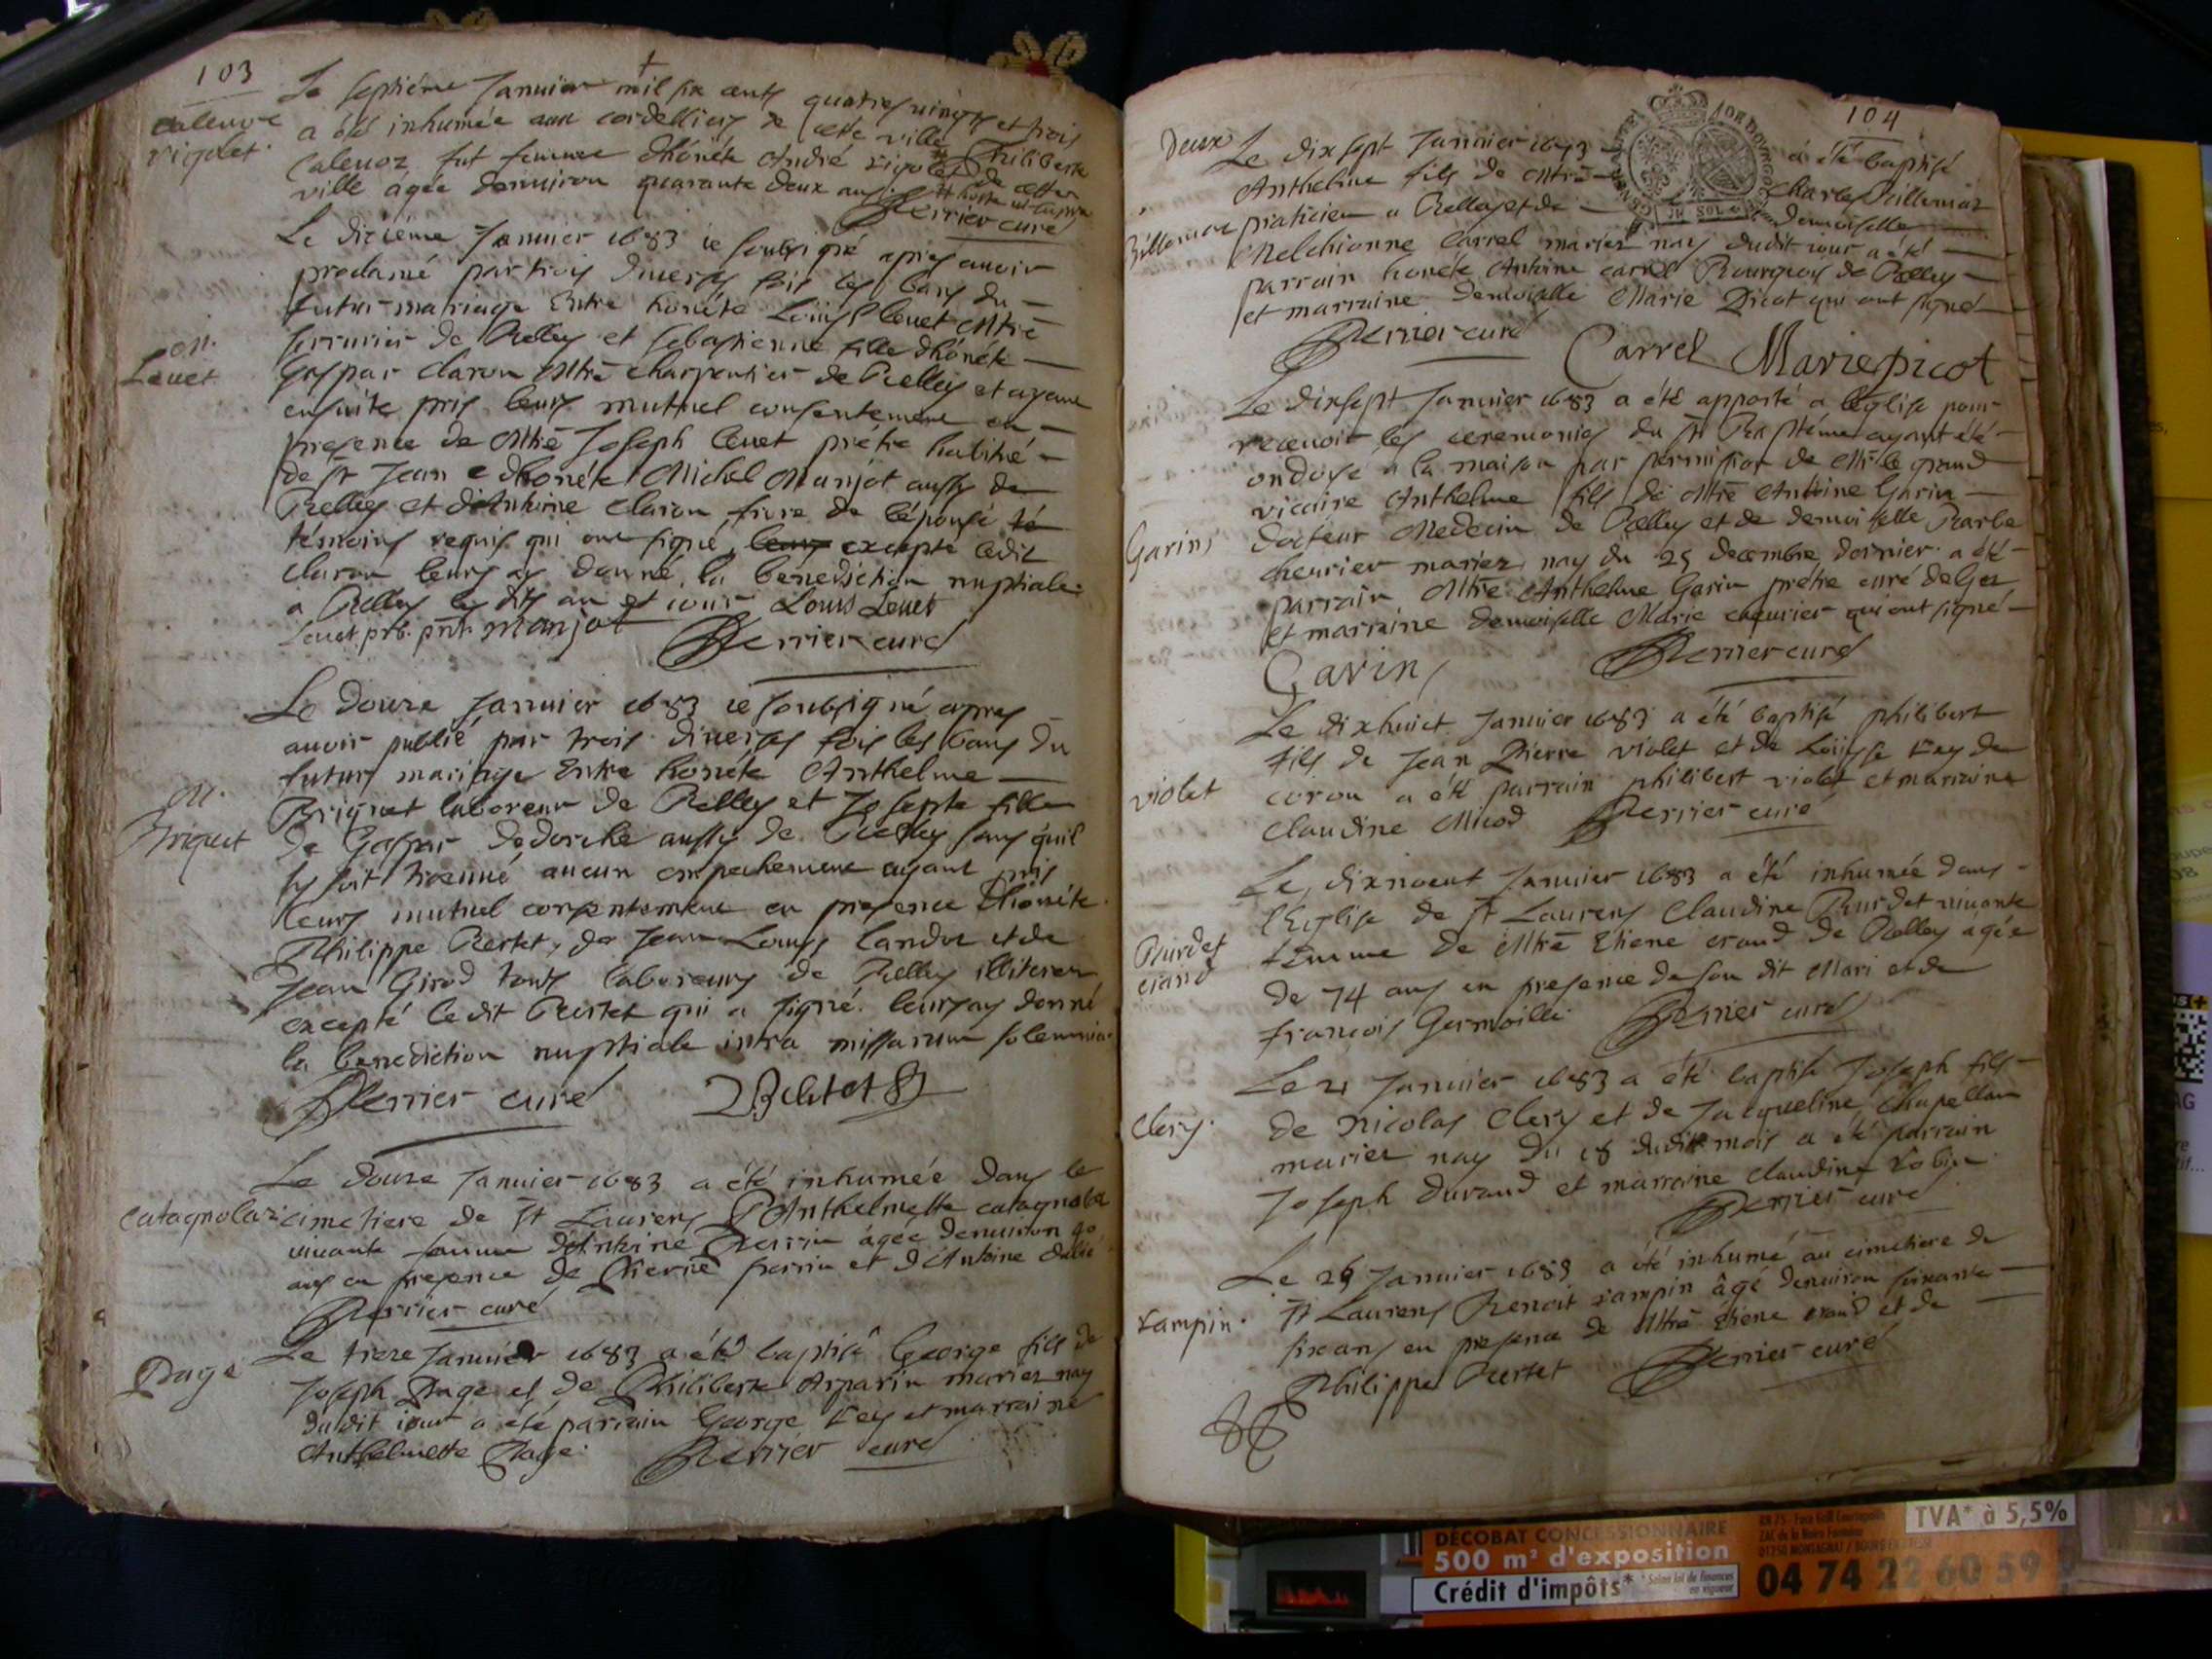 103
Le septième Januier mil six cents quatres vingts et trois
a été inhumée aux cordelliers de cette ville Philiberte
Caleuoz fut femme dhonéte André vigolet de cette
ville âgée denuiron quarante deux ans
Perrier curé
Le dixième Januier 1683 ie soubsigné apres auoir
proclamé par trois diuerses fois les bans du
futur mariage Entre honéte Louis leuet Mtre
serrurier de Belley et sebastienne fille dhonéte
Gaspar claron Mtre charpentier de Belley et ayant
ensuite pris leurs mutuel consentement en
presence de Mtre Joseph leuet prétre habitué
de st Jean e dhonéte Michel Manjot aussy de
Belley et d'Anthoine claron frere de lépouse té
témoins requis qui ont signé, excepté ledit
claron leurs ay donné la benediction nuptiale
a Belley les dits an et iour Louis Leuet
Leuet prb. pnt. manjot Perrier curé
Leuet
Le douze Januier 1683 ie soubsigné apres
auoir publié par trois diuerses fois les bans du
futurs mariage Entre honéte Anthelme
Briquet laboreur de Belley et Josephte fille
de Gaspar dedorche aussy de Belley sans quil
sy soit treuué aucun empechement ayant pris
leurs mutuel consentement en presence dhonéte
Philippe Bertet, de Jean Louys landoz et de
Jean Girod touts laboreurs de Belley illiterez
excepté ledit Bertet qui a signé. leursay donné
la benediction nuptiale intra missarum solemnia.
Perrier curé PBertet
Briquet
Le douze Januier 1683 a été inhumée dans le
cimetiere de st Laurens Anthelmette catagnolaz
viuante femme dAntoine Perrin âgée denuiron 40
ans en presence de Pierre perrin et dAntoine
Perrier curé
catagnolaz
Le treze Januier 1683 a été baptisé George fils de
Joseph Page et de Philiberte Arparin mariez nay
dudit iour a été parrain George Rey et marraine
Anthelmette Page. Perrier curé
Page
104
GENERALITE
DE BOURGOGNE
Deux
Le dix sept Januier 1683 a été baptisé
Anthelme fils de Mtre Charles Billemaz
praticien a Belley et de demoiselle
Melchionne Carrel mariez nay dudit iour a été
parrain honéte Antoine carrel Bourgeois de Belley
et marraine demoiselle Marie Picot qui ont signé
Perrier curé Carrel Marie picot
Billemaz
Le dixsept Januier 1683 a été apporté a léglise pour
receuoir les ceremonies du st Baptéme ayant été
ondoyé a la maison par permission de Mr le grand
vicaire Anthelme fils de Mtre Antoine Garin
docteur Medecin de Belley et de demoiselle Barbe
cheurier mariez nay du 25 decembre dernier. a été
parrain Mtre Anthelme Garin prétre curé de Gez
et marraine demoiselle Marie cheurier qui ont signé
Garin Perrier curé
Garin
Le dixhuict Januier 1683 a été baptisé philibert
fils de Jean Pierre violet et de Louyse Rey de
coron a été parrain philibert violet et marraine
claudine Micod Perrier curé
violet
Le dixneuf Januier 1683 a été inhumée dans
l'Eglise de st Laurens Claudine Burdet viuante
femme de Mtre Etiene eraud de Belley âgée
de 74 ans en presence de son dit Mari et de
francois Germoille Perrier curé
Burdet
eraud
Le 21 Januier 1683 a été baptisé Joseph fils
de Nicolas Clery et de Jacqueline chapellan
mariez nay du 18 dudit mois a été parrain
Joseph durand et marraine claudine Robin
Perrier curé
Clery.
Le 29 Januier 1683 a été inhumé au cimetiere de
st Laurens Benoit rampin âgé denuiron soixante
six ans en presence de Mtre étiene eraud et de
Philippe Bertet Perrier curé
rampin.
DECOBAT CONCESSIONNAIRE
500 m² d'exposition
Crédit d'impôts*
TVA* à 5,5%
04 74 22 60 59